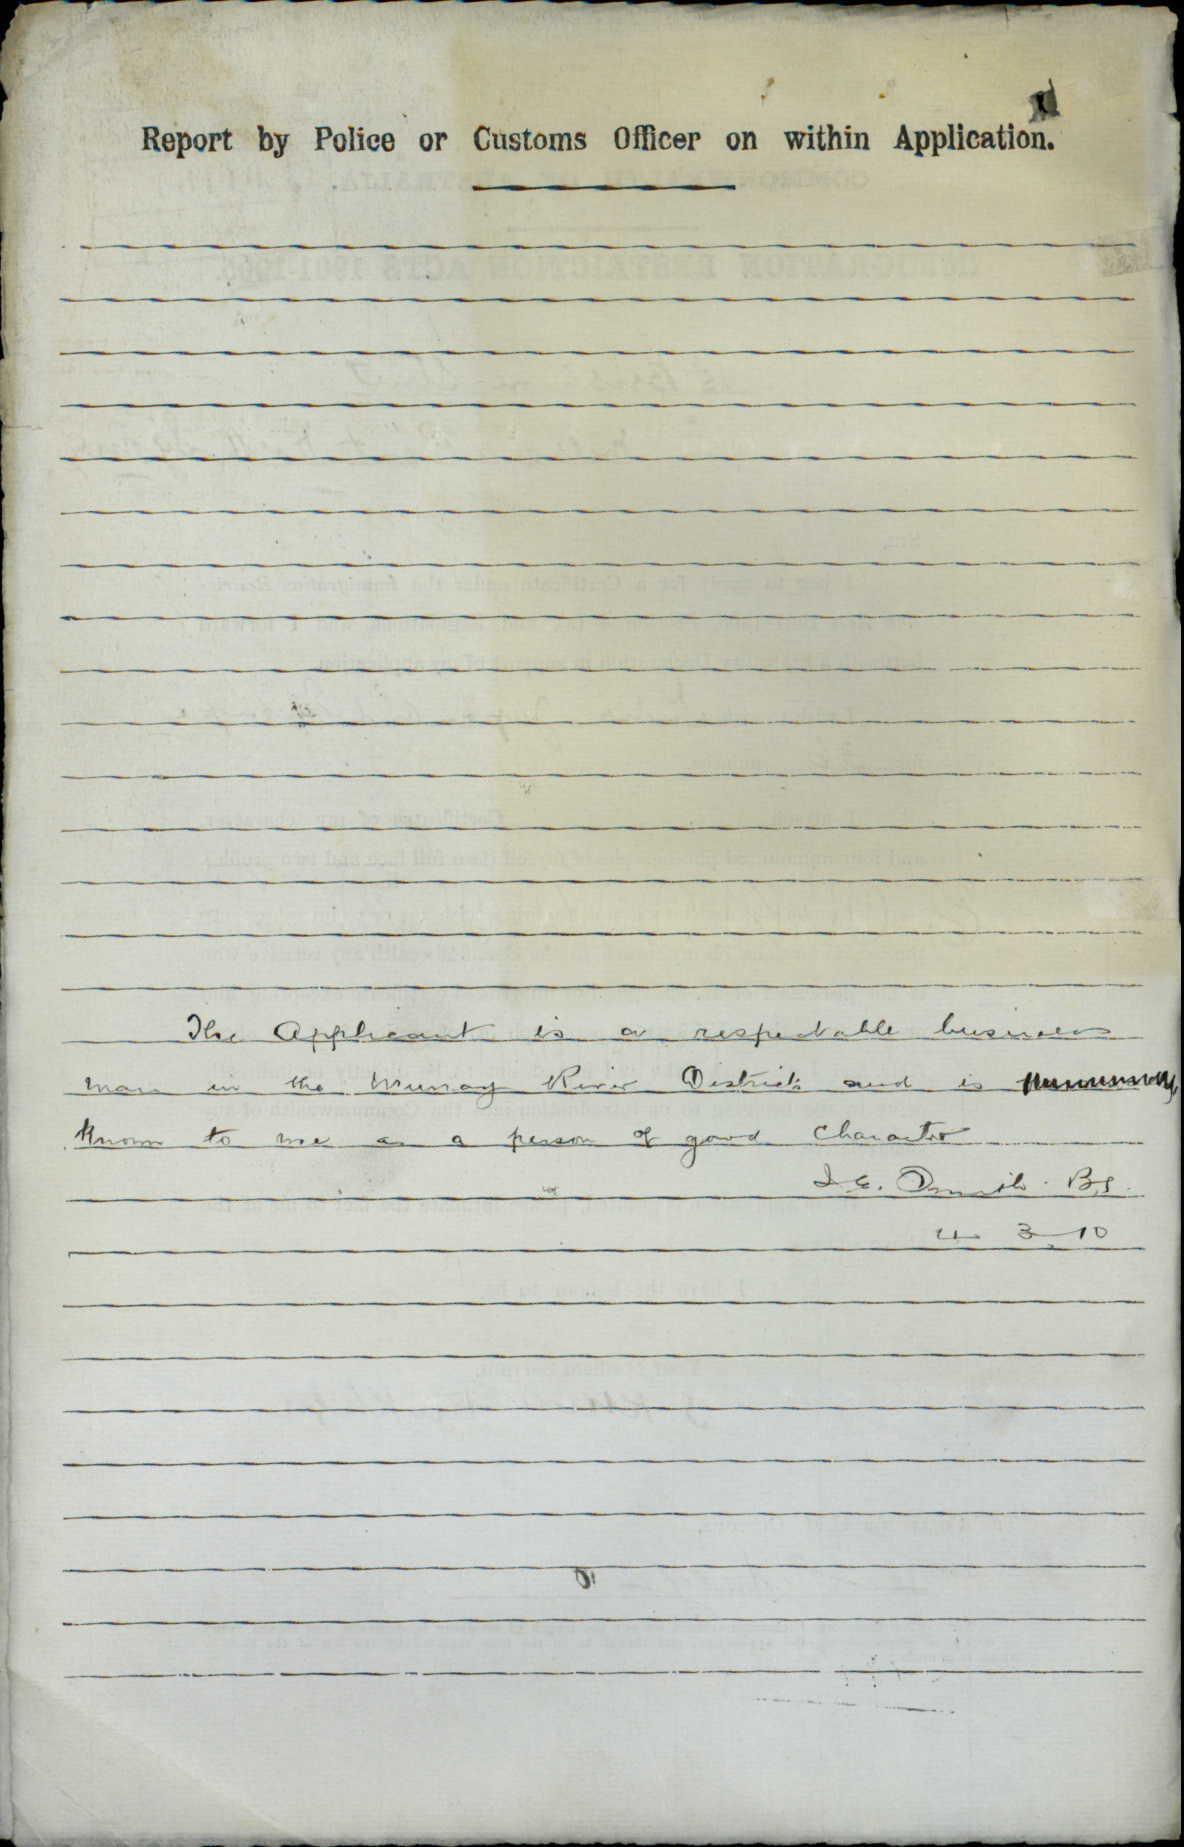 Report by Police or Customs Officer on within Application.
The Applicant is a respectable business
man in the Murray River District and is
known to me as a person of good character
Smith
4 3 10